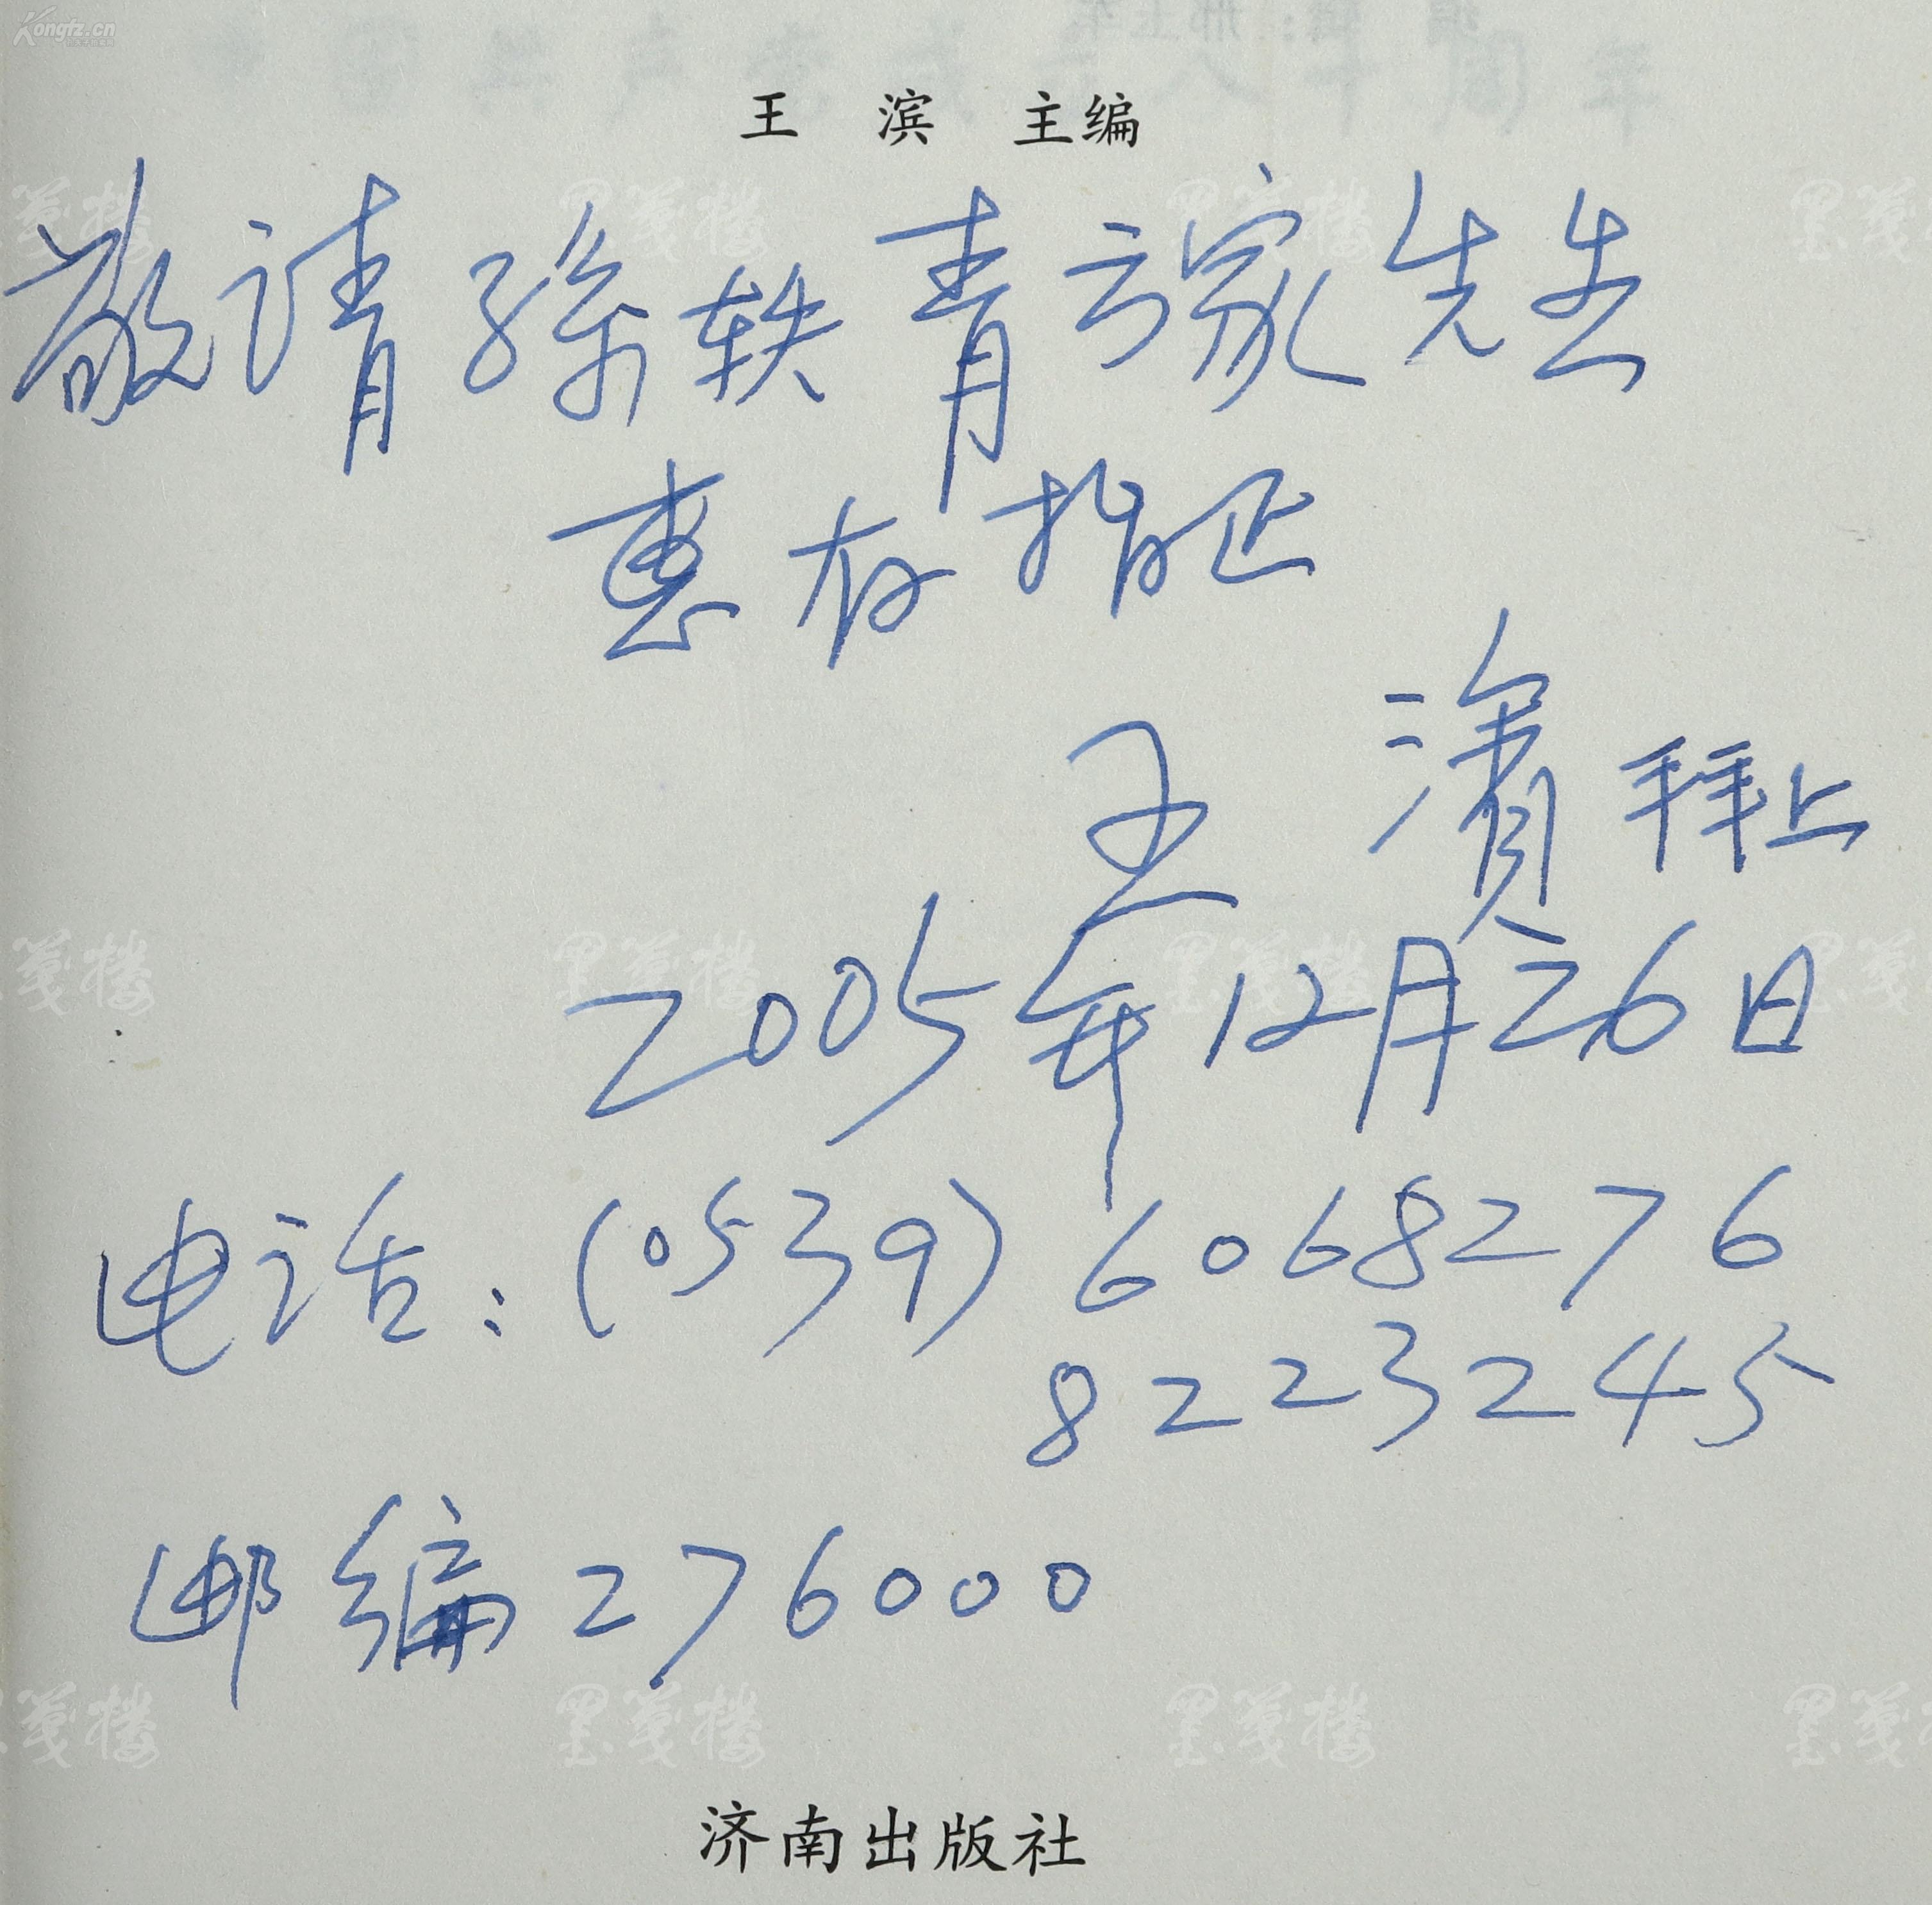 Kongfz.cn
王 滨 主编
敬请孫轶青方家先生
惠存指正
王 濱 拜上
2005年12月26日
电话：(0539) 6068276
8223245
邮编 276000
墨笺楼
济南出版社